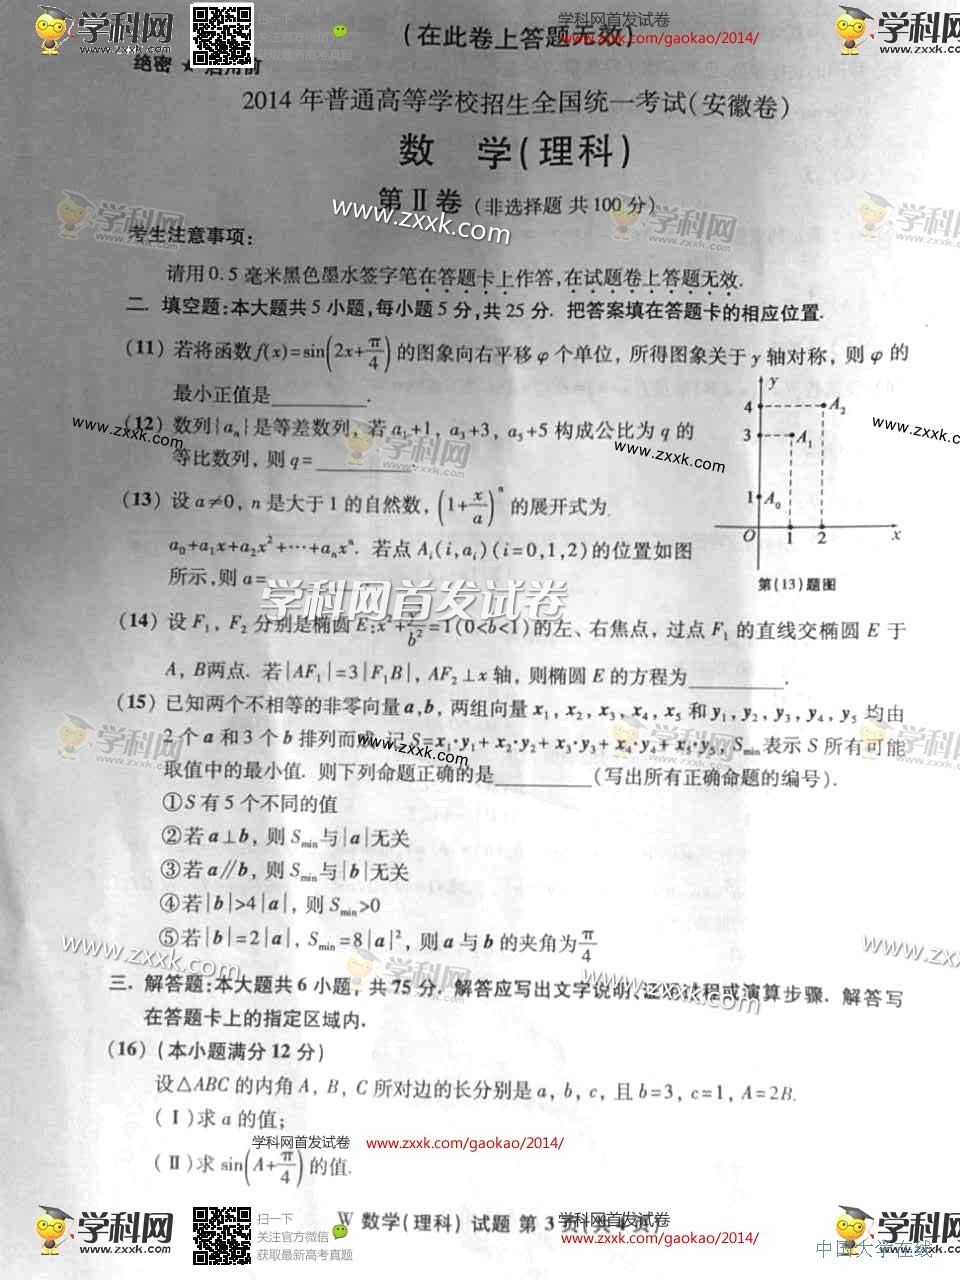 学科网 www.zxxk.com 扫一扫 关注官方微信 获取最新高考真题 学科网首发试卷 www.zxxk.com/gaokao/2014/ 学科网 www.zxxk.com
(在此卷上答题无效)
绝密 ★ 启用前
2014年普通高等学校招生全国统一考试(安徽卷)
数 学(理科)
第Ⅱ卷 (非选择题 共100分)
考生注意事项:
请用0.5毫米黑色墨水签字笔在答题卡上作答,在试题卷上答题无效.
二. 填空题:本大题共5小题,每小题5分,共25分. 把答案填在答题卡的相应位置.
(11) 若将函数f(x)=sin(2x+π/4)的图象向右平移φ个单位, 所得图象关于y轴对称, 则φ的
最小正值是________.
(12) 数列{aₙ}是等差数列, 若a₁+1, a₃+3, a₅+5构成公比为q的
等比数列, 则q=________.
(13) 设a≠0, n是大于1的自然数, (1+x/a)ⁿ的展开式为
a₀+a₁x+a₂x²+⋯+aₙxⁿ. 若点Aᵢ(i,aᵢ)(i=0,1,2)的位置如图
所示,则a=
y
4 A₂
3 A₁
1 A₀
O 1 2 x
第(13)题图
学科网首发试卷
(14) 设F₁, F₂分别是椭圆E:x²+y²/b²=1(0<b<1)的左、右焦点, 过点F₁的直线交椭圆E于
A, B两点. 若|AF₁|=3|F₁B|, AF₂⊥x轴, 则椭圆E的方程为________.
(15) 已知两个不相等的非零向量a,b, 两组向量x₁, x₂, x₃, x₄, x₅和y₁, y₂, y₃, y₄, y₅均由
2个a和3个b排列而成. 记S=x₁·y₁+x₂·y₂+x₃·y₃+x₄·y₄+x₅·y₅, Smin表示S所有可能
取值中的最小值. 则下列命题正确的是________(写出所有正确命题的编号).
①S有5个不同的值
②若a⊥b, 则Smin与|a|无关
③若a∥b, 则Smin与|b|无关
④若|b|>4|a|, 则Smin>0
⑤若|b|=2|a|, Smin=8|a|², 则a与b的夹角为π/4
三. 解答题:本大题共6小题, 共75分. 解答应写出文字说明、证明过程或演算步骤. 解答写
在答题卡上的指定区域内.
(16) (本小题满分12分)
设△ABC的内角A, B, C所对边的长分别是a, b, c, 且b=3, c=1, A=2B.
(Ⅰ)求a的值;
学科网首发试卷 www.zxxk.com/gaokao/2014/
(Ⅱ)求sin(A+π/4)的值.
W 数学(理科) 试题 第3页(共4页)
学科网 www.zxxk.com 扫一扫 关注官方微信 获取最新高考真题 www.zxxk.com/gaokao/2014/ 学科网 www.zxxk.com
中国大学在线